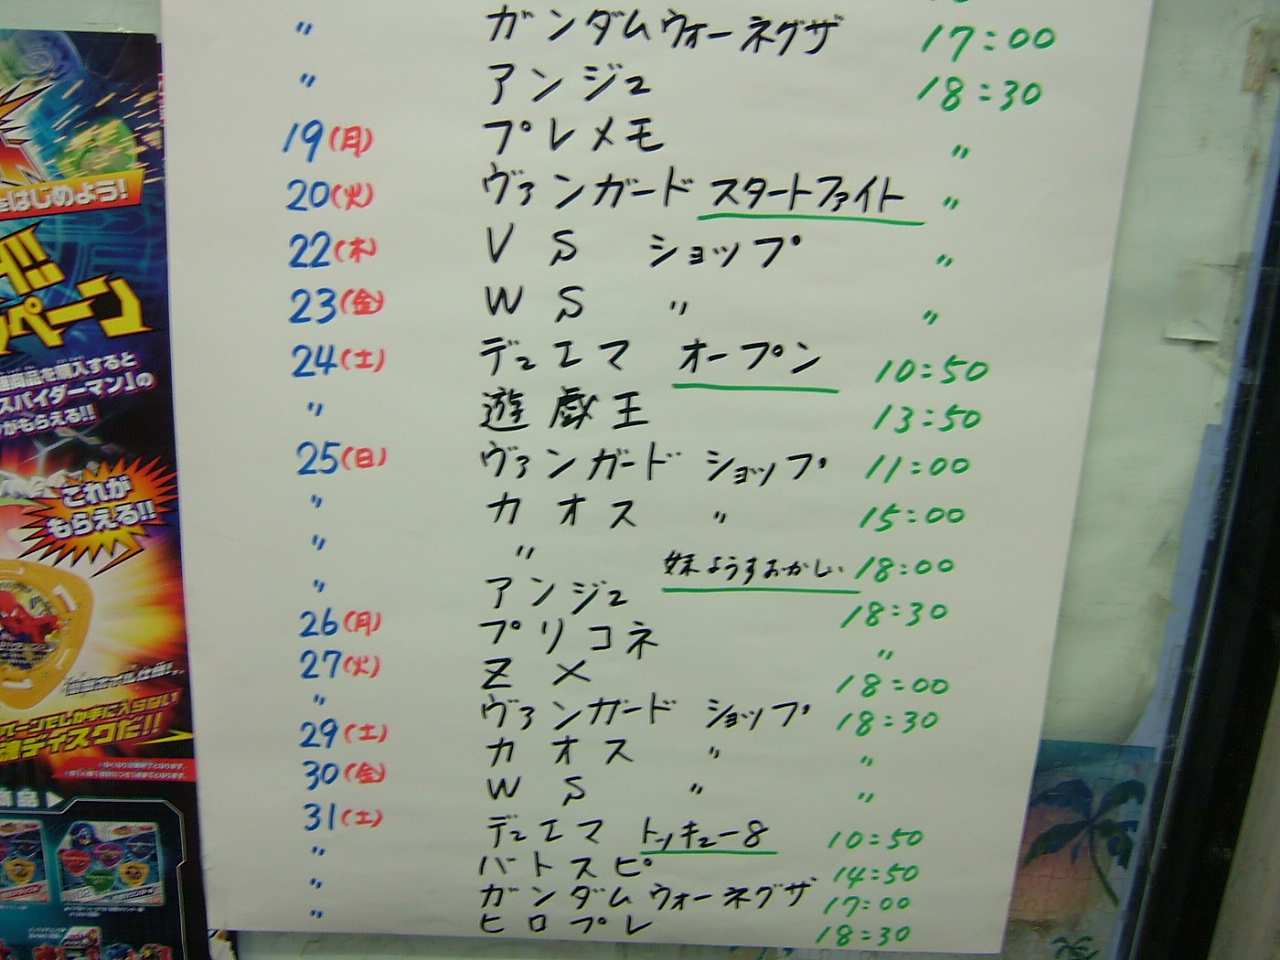 〃 ガンダムウォーネグザ 17:00
〃 アンジュ 18:30
19(月) プレメモ 〃
20(火) ヴァンガード スタートファイト 〃
22(木) VS ショップ 〃
23(金) WS 〃 〃
24(土) デュエマ オープン 10:50
〃 遊戯王 13:50
25(日) ヴァンガード ショップ 11:00
〃 カオス 〃 15:00
〃 〃 妹ようすおかしい 18:00
〃 アンジュ 18:30
26(月) プリコネ 〃
27(火) ZX 18:00
〃 ヴァンガード ショップ 18:30
29(土) カオス 〃 〃
30(金) WS 〃 〃
31(土) デュエマ トッキュー8 10:50
〃 バトスピ 14:50
〃 ガンダムウォーネグザ 17:00
〃 ヒロプレ 18:30
はじめよう!
ペーン
商品を購入すると
スパイダーマン」の
がもらえる!!
これが
もらえる!!
ディスクだ!!
商品